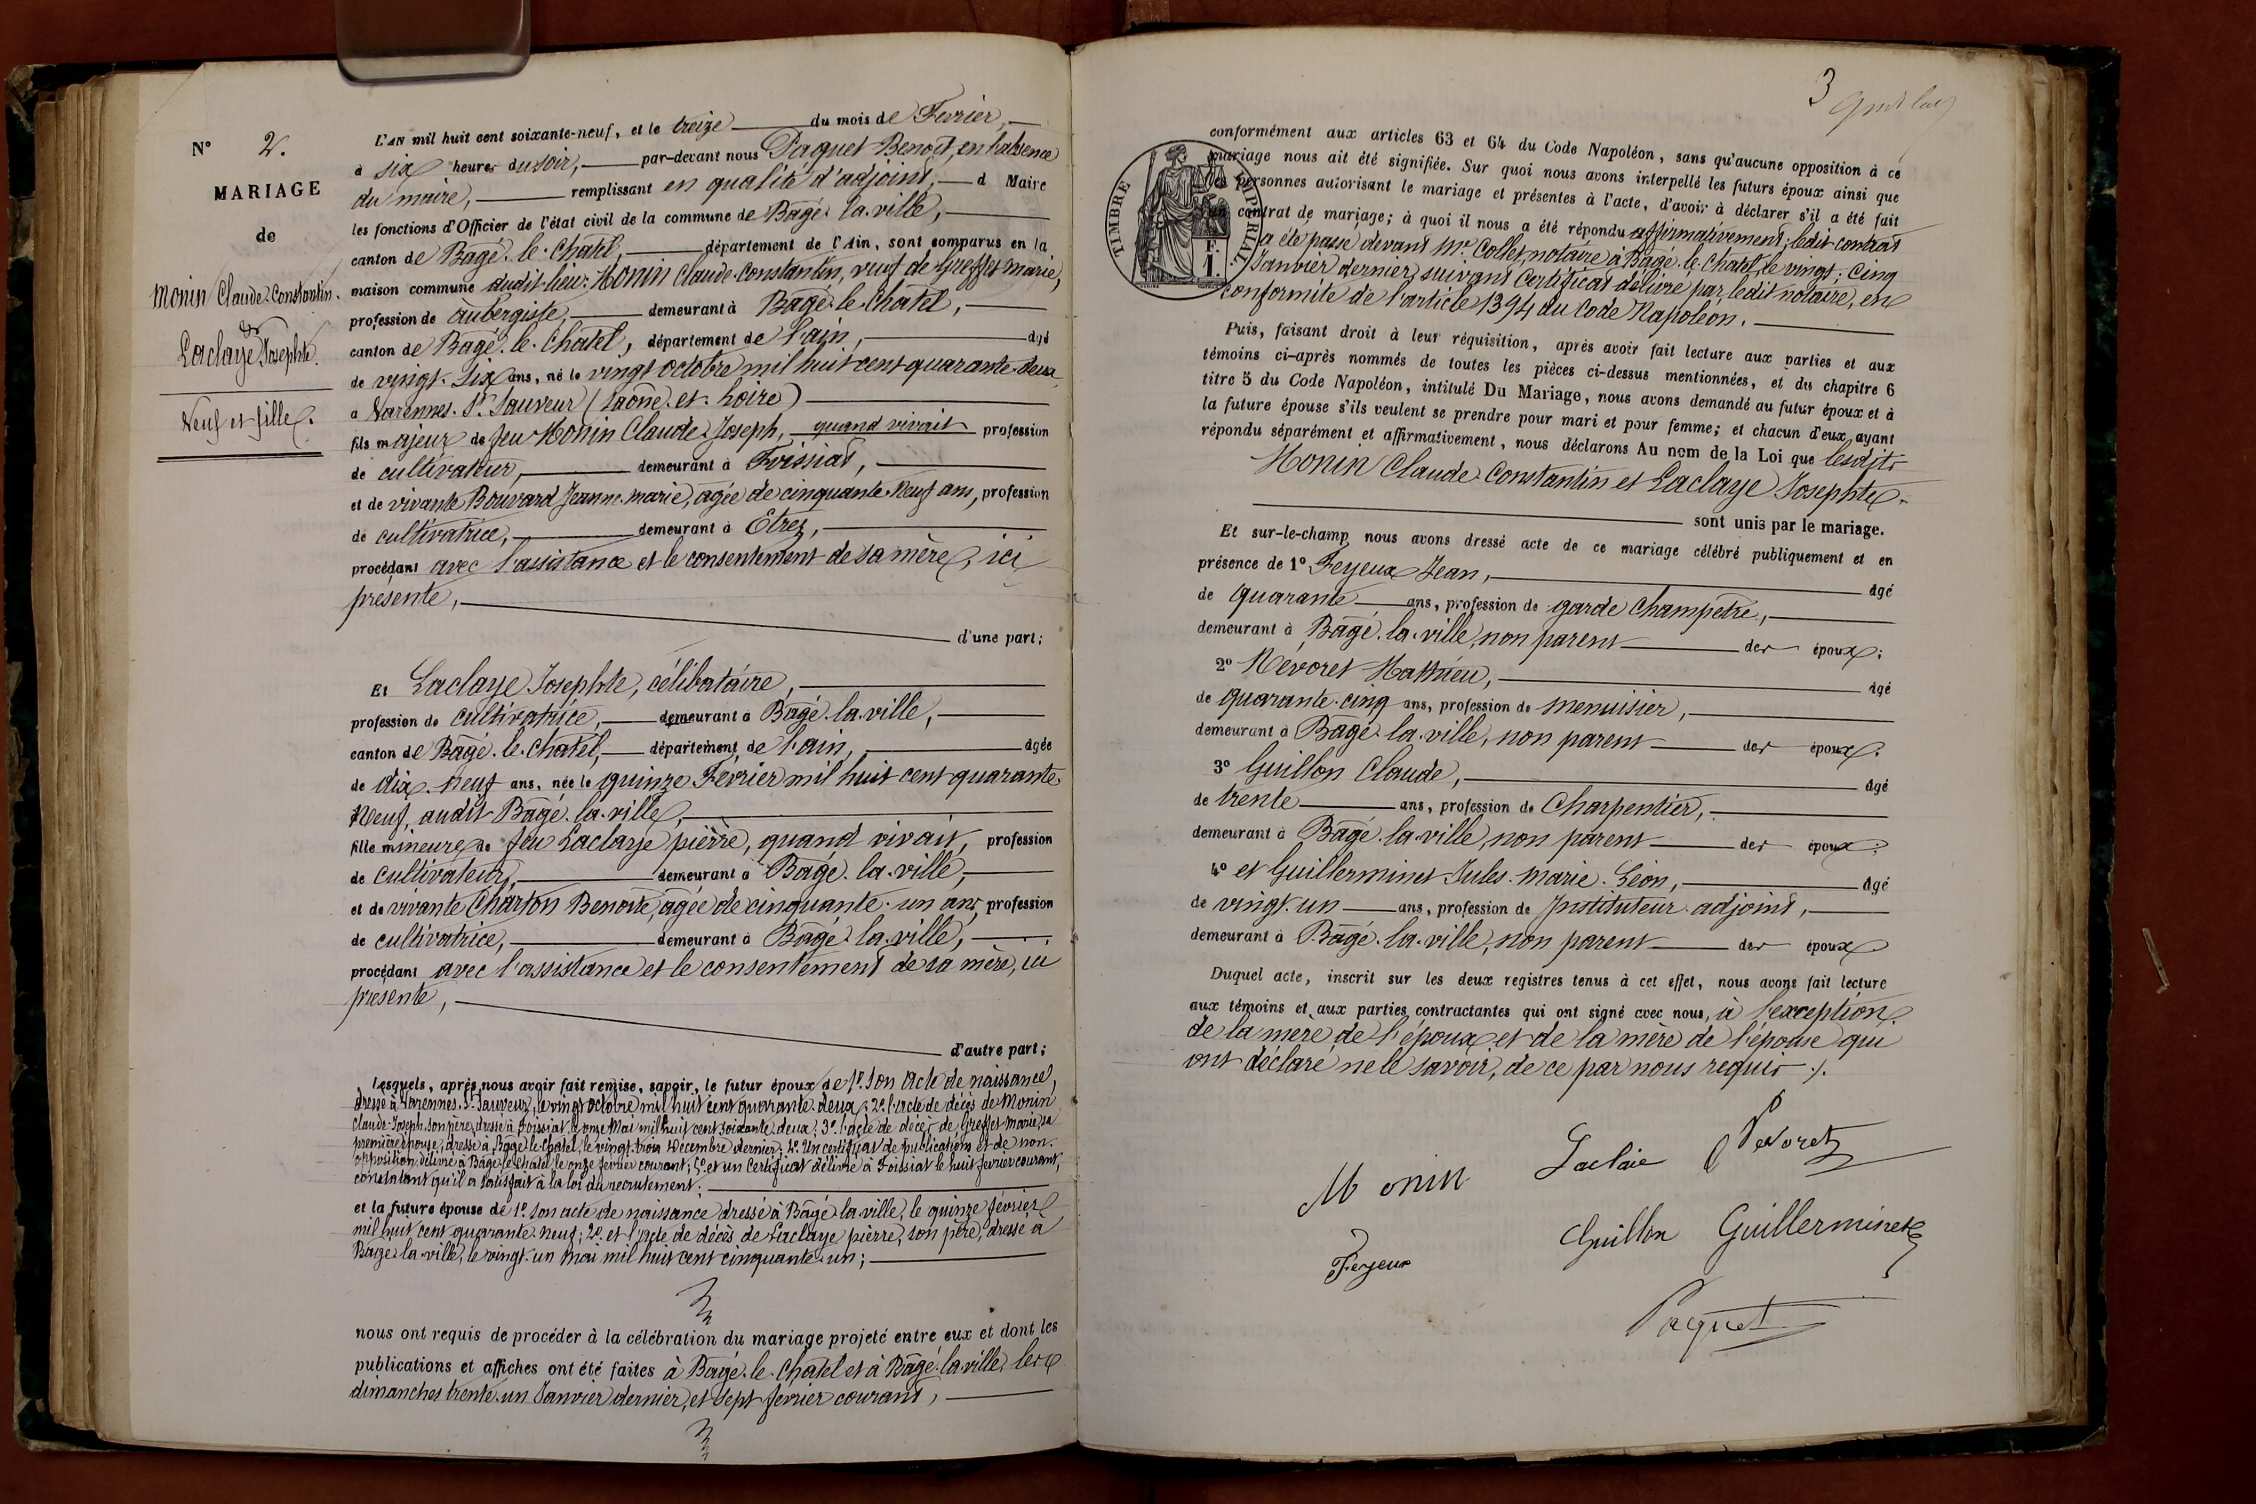 N° 2.
MARIAGE
de
Monin Claude-Constantin.
et
Laclaye Josephte.
Veuf et fille.
L'AN mil huit cent soixante-neuf, et le treize du mois de Fevrier,
à six heures du soir, par-devant nous Paquet Benoit, en l'absence
du maire, remplissant en qualité d'adjoint, d Maire
les fonctions d'Officier de l'état civil de la commune de Bagé-la-ville,
canton de Bagé-le-Chatel, département de l'Ain, sont comparus en la
maison commune dudit lieu: Monin Claude-Constantin, veuf de Greffet marie,
profession de aubergiste, demeurant à Bagé-le-Chatel,
canton de Bagé-le-Chatel, département de l'ain, âgé
de vingt-six ans, né le vingt octobre mil huit cent quarante-deux,
à Varennes-St Sauveur (Saône-et-Loire)
fils majeur de feu Monin Claude-Joseph, quand vivait profession
de cultivateur, demeurant à Foissiat,
et de vivante Bouvard Jeanne-marie, agée de cinquante-neuf ans, profession
de cultivatrice, demeurant à Etrez,
procédant avec l'assistance et le consentement de sa mère, ici
présente,
d'une part;
Et Laclaye Josephte, célibataire,
profession de cultivatrice, demeurant à Bagé-la-ville,
canton de Bagé-le-Chatel, département de l'ain, âgée
de dix-neuf ans, née le quinze Février mil huit cent quarante-
neuf, audit Bagé-la-ville,
fille mineure de feu Laclaye pierre, quand vivait, profession
de cultivateur, demeurant à Bagé-la-ville,
et de vivante Charton Benoite, agée de cinquante-un ans, profession
de cultivatrice, demeurant à Bagé-la-ville,
procédant avec l'assistance et le consentement de sa mère, ici
présente,
d'autre part;
Lesquels, après nous avoir fait remise, savoir, le futur époux de 1° son acte de naissance,
dressé à Varennes-St Sauveur, le vingt octobre mil huit cent quarante-deux; 2° l'acte de décès de Monin
Claude-Joseph, son père, dressé à Foissiat le onze Mai mil huit cent soixante-deux; 3° l'acte de décès de Greffet Marie, sa
première épouse, dressé à Bagé-le-Chatel, le vingt-trois Décembre dernier; 4° Un certificat de publications et de non-
opposition délivré à Bagé-le-Chatel le onze février courant; 5° et un certificat délivré à Foissiat le huit février courant,
constatant qu'il a satisfait à la loi du recrutement;
et la future épouse de 1° son acte de naissance dressé à Bagé-la-ville, le quinze février
mil huit cent quarante-neuf; 2° et l'acte de décès de Laclaye pierre, son père, dressé à
Bagé-la-ville, le vingt-un mai mil huit cent cinquante-un;
nous ont requis de procéder à la célébration du mariage projeté entre eux et dont les
publications et affiches ont été faites à Bagé-le-Chatel et à Bagé-la-ville, les
dimanches trente-un Janvier dernier, et sept fevrier courant,
3
conformément aux articles 63 et 64 du Code Napoléon, sans qu'aucune opposition à ce
mariage nous ait été signifiée. Sur quoi nous avons interpellé les futurs époux ainsi que
les personnes autorisant le mariage et présentes à l'acte, d'avoir à déclarer s'il a été fait
un contrat de mariage; à quoi il nous a été répondu affirmativement; ledit contrat
a été passé devant Mr Collet, notaire à Bagé-le-Chatel, le vingt-cinq
Janvier dernier, suivant Certificat délivré par ledit notaire, en
conformité de l'article 1394 du Code Napoléon.
TIMBRE IMPERIAL
F.
1.
Puis, faisant droit à leur réquisition, après avoir fait lecture aux parties et aux
témoins ci-après nommés de toutes les pièces ci-dessus mentionnées, et du chapitre 6
titre 5 du Code Napoléon, intitulé Du Mariage, nous avons demandé au futur époux et à
la future épouse s'ils veulent se prendre pour mari et pour femme; et chacun d'eux ayant
répondu séparément et affirmativement, nous déclarons Au nom de la Loi que lesdits
Monin Claude-Constantin et Laclaye Josephte
sont unis par le mariage.
Et sur-le-champ nous avons dressé acte de ce mariage célébré publiquement et en
présence de 1° Feyeux Jean, âgé
de quarante ans, profession de garde Champêtre,
demeurant à Bagé-la-ville, non parent des époux;
2° Névoret Mathieu, âgé
de quarante-cinq ans, profession de menuisier,
demeurant à Bagé-la-ville, non parent des époux;
3° Guillon Claude, âgé
de trente ans, profession de Charpentier,
demeurant à Bagé-la-ville, non parent des époux;
4° et Guillerminet Jules-Marie-Léon, âgé
de vingt-un ans, profession de Instituteur-adjoint,
demeurant à Bagé-la-ville, non parent des époux
Duquel acte, inscrit sur les deux registres tenus à cet effet, nous avons fait lecture
aux témoins et aux parties contractantes qui ont signé avec nous, à l'exception
de la mere de l'époux et de la mère de l'épouse qui
ont déclaré ne le savoir, de ce par nous requis ./.
Monin Laclaie Nevoret
Feyeux Guillon Guillerminet
Paquet